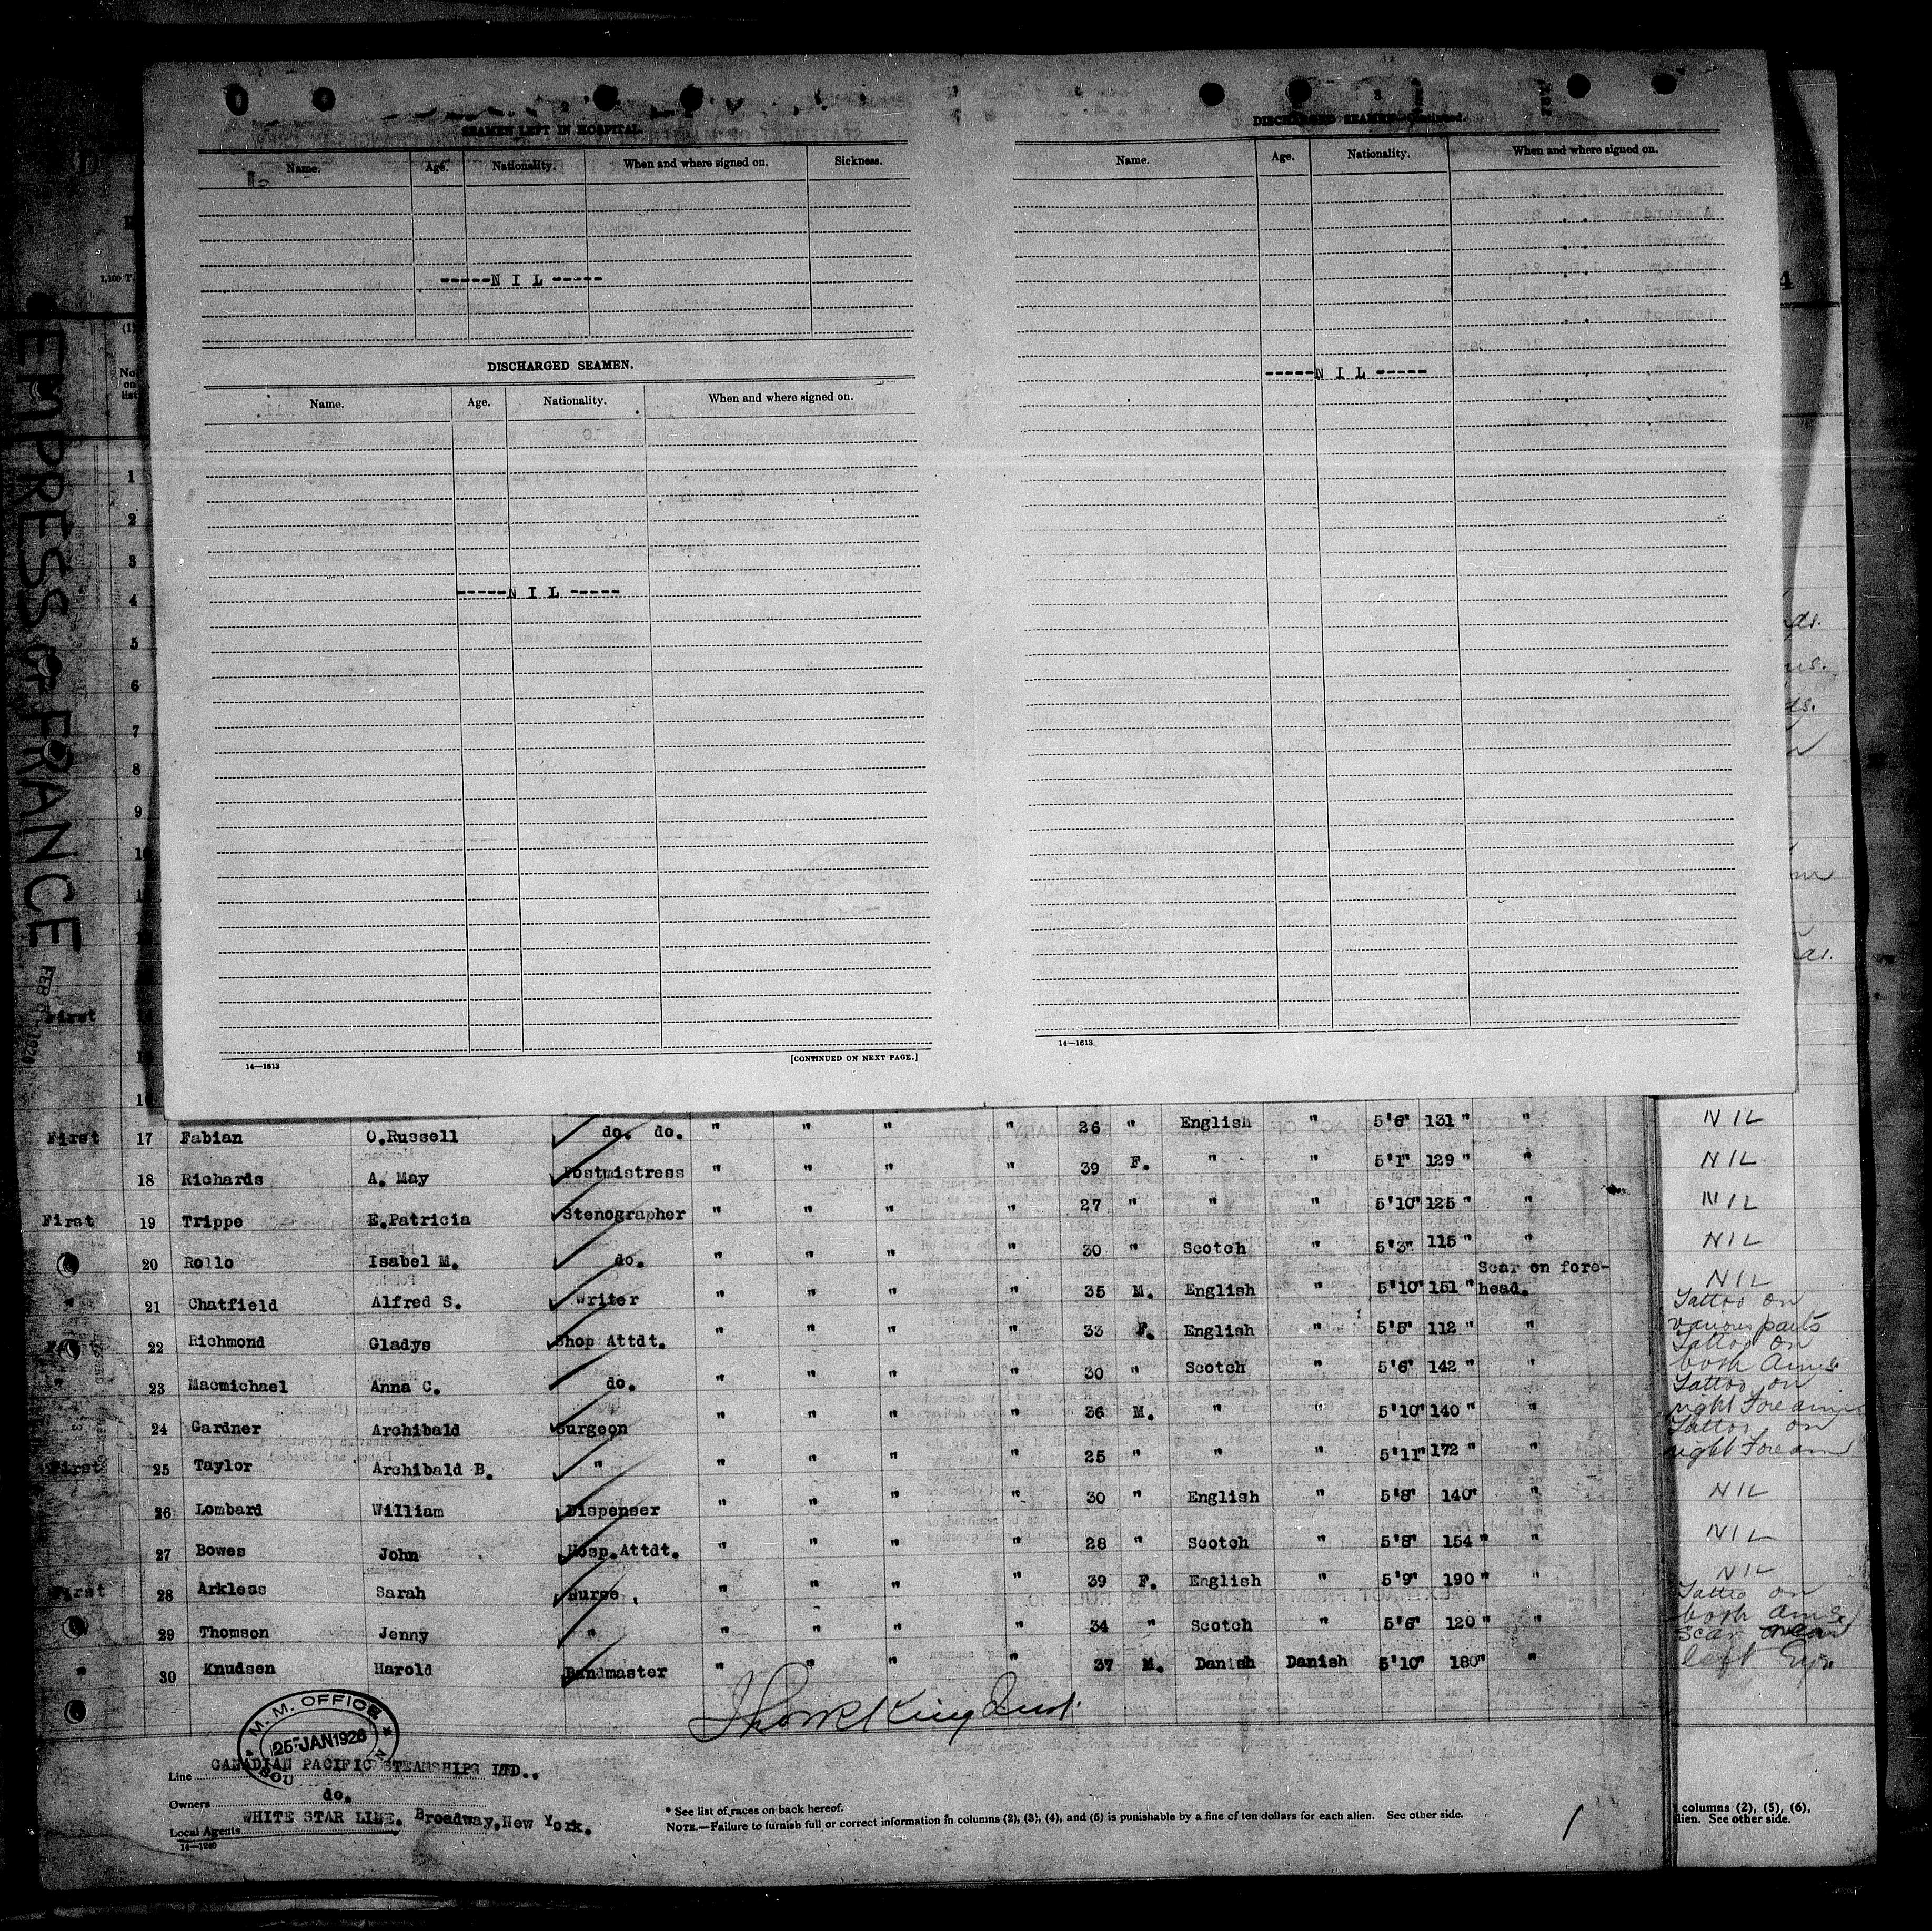 EMPRESS OF FRANCE
SEAMEN LEFT IN HOSPITAL.
Name. Age. Nationality. When and where signed on. Sickness.
-----N I L -----
DISCHARGED SEAMEN.
Name. Age. Nationality. When and where signed on.
-----N I L -----
14—1613 [CONTINUED ON NEXT PAGE.]
3
DISCHARGED SEAMEN—Continued.
Name. Age. Nationality. When and where signed on.
-----N I L -----
14—1613
1
2
3
4
5
6
7
8
9
10
First
First 17 Fabian O.Russell do. do. " " " " 26 " English " 5'6" 131 " "
18 Richards A. May Postmistress " " " " 39 F. " " 5'1" 129 " "
First 19 Trippe E.Patricia Stenographer " " " " 27 " " " 5'10" 125 " "
20 Rollo Isabel M. do. " " " " 30 " Scotch " 5'3" 115 " "
21 Chatfield Alfred S. Writer " " " " 35 M. English " 5'10" 151 " Scar on fore-head.
22 Richmond Gladys Shop Attdt. " " " " 33 F. English " 5'5" 112 " "
23 Macmichael Anna C. do. " " " " 30 " Scotch " 5'6" 142 " "
24 Gardner Archibald Surgeon " " " " 36 M. " " 5'10" 140 " "
First 25 Taylor Archibald B. " " " " " 25 " " " 5'11" 172 " "
26 Lombard William Dispenser " " " " 30 " English " 5'8" 140" "
27 Bowes John Hosp.Attdt. " " " " 28 " Scotch " 5'8" 154 " "
First 28 Arkless Sarah Nurse " " " " 39 F. English " 5'9" 190 " "
29 Thomson Jenny " " " " " 34 " Scotch " 5'6" 120 " "
30 Knudsen Harold Bandmaster " " " " 37 M. Danish Danish 5'10" 180" "
M. M. OFFICE
25 JAN 1928
SOU
Line CANADIAN PACIFIC STEAMSHIPS LTD..
Owners do.
Local Agents WHITE STAR LINE. Broadway,New York.
14—1240
* See list of races on back hereof.
NOTE.—Failure to furnish full or correct information in columns (2), (3), (4), and (5) is punishable by a fine of ten dollars for each alien. See other side.
NIL
NIL
NIL
NIL
NIL
Tattoo on
various parts
Tattoo on
both Arms
Tattoo on
right Forearm
Tattoo on
right Forearm
NIL
NIL
NIL
Tattoo on
both Arms
scar near
left Eye
columns (2), (5), (6),
lien. See other side.